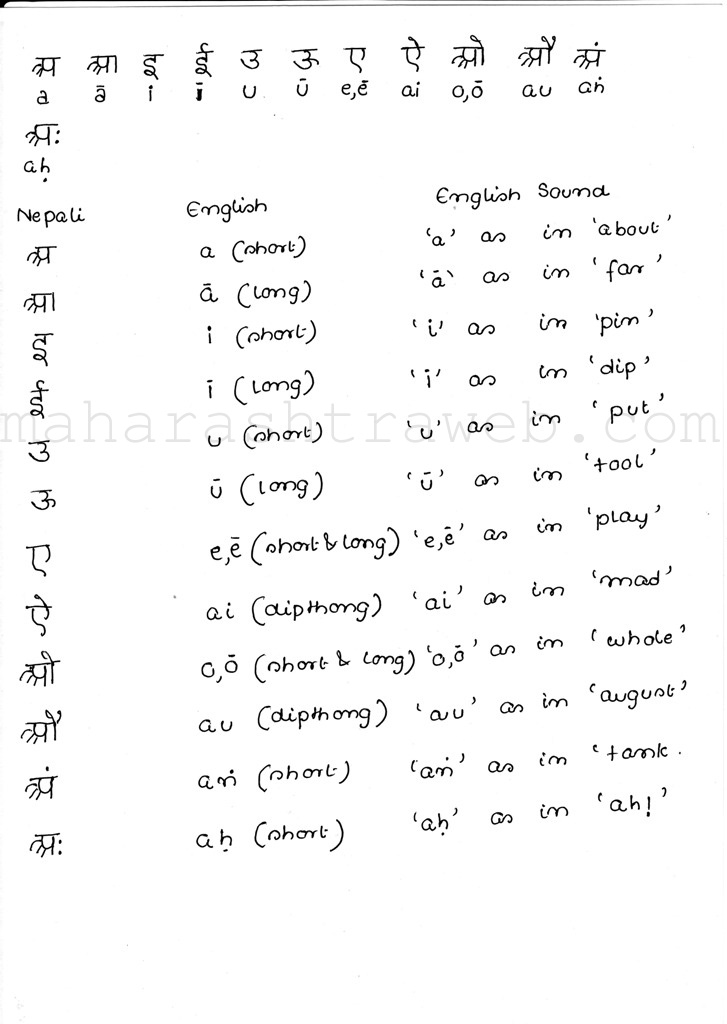 अ आ इ ई उ ऊ ए ऐ ओ औ अं
a ā i ī u ū e,ē ai o,ō au aṅ
अः
aḥ
Nepali English English Sound
अ a (short) 'a' as in 'about'
आ ā (long) 'ā' as in 'far'
इ i (short) 'i' as in 'pin'
ई ī (long) 'ī' as in 'dip'
maharashtraweb.com
उ u (short) 'u' as in 'put'
ऊ ū (long) 'ū' as in 'tool'
ए e,ē (short & long) 'e,ē' as in 'play'
ऐ ai (dipthong) 'ai' as in 'mad'
ओ o,ō (short & long) 'o,ō' as in 'whole'
औ au (dipthong) 'au' as in 'august'
अं aṅ (short) 'aṅ' as in 'tank.
अः aḥ (short) 'aḥ' as in 'ah!'